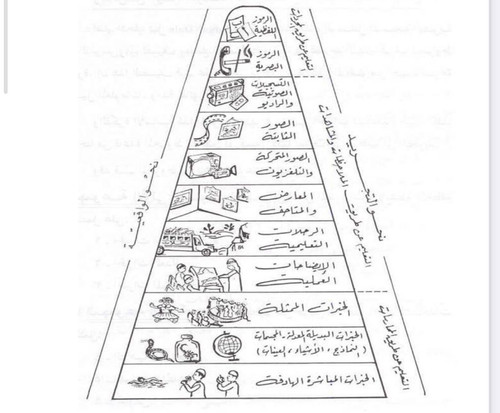 الرموز
اللفظية
الرموز
البصرية
التسجيلات
الصوتية
والراديو
الصور
الثابتة
الصور المتحركة
والتلفزيون
المعارض
والمتاحف
الرحلات
التعليمية
الإيضاحات
العملية
الخبرات الممثلة
الخبرات البديلة المعدلة، المجسمات
(النماذج، الأشياء، العينات)
الخبرات المباشرة الهادفة
التعليم عن طريق المجردات
التعليم عن طريق الملاحظات والمشاهدات
التعليم عن طريق الممارسات
نحو التجريد
نحو الواقعية